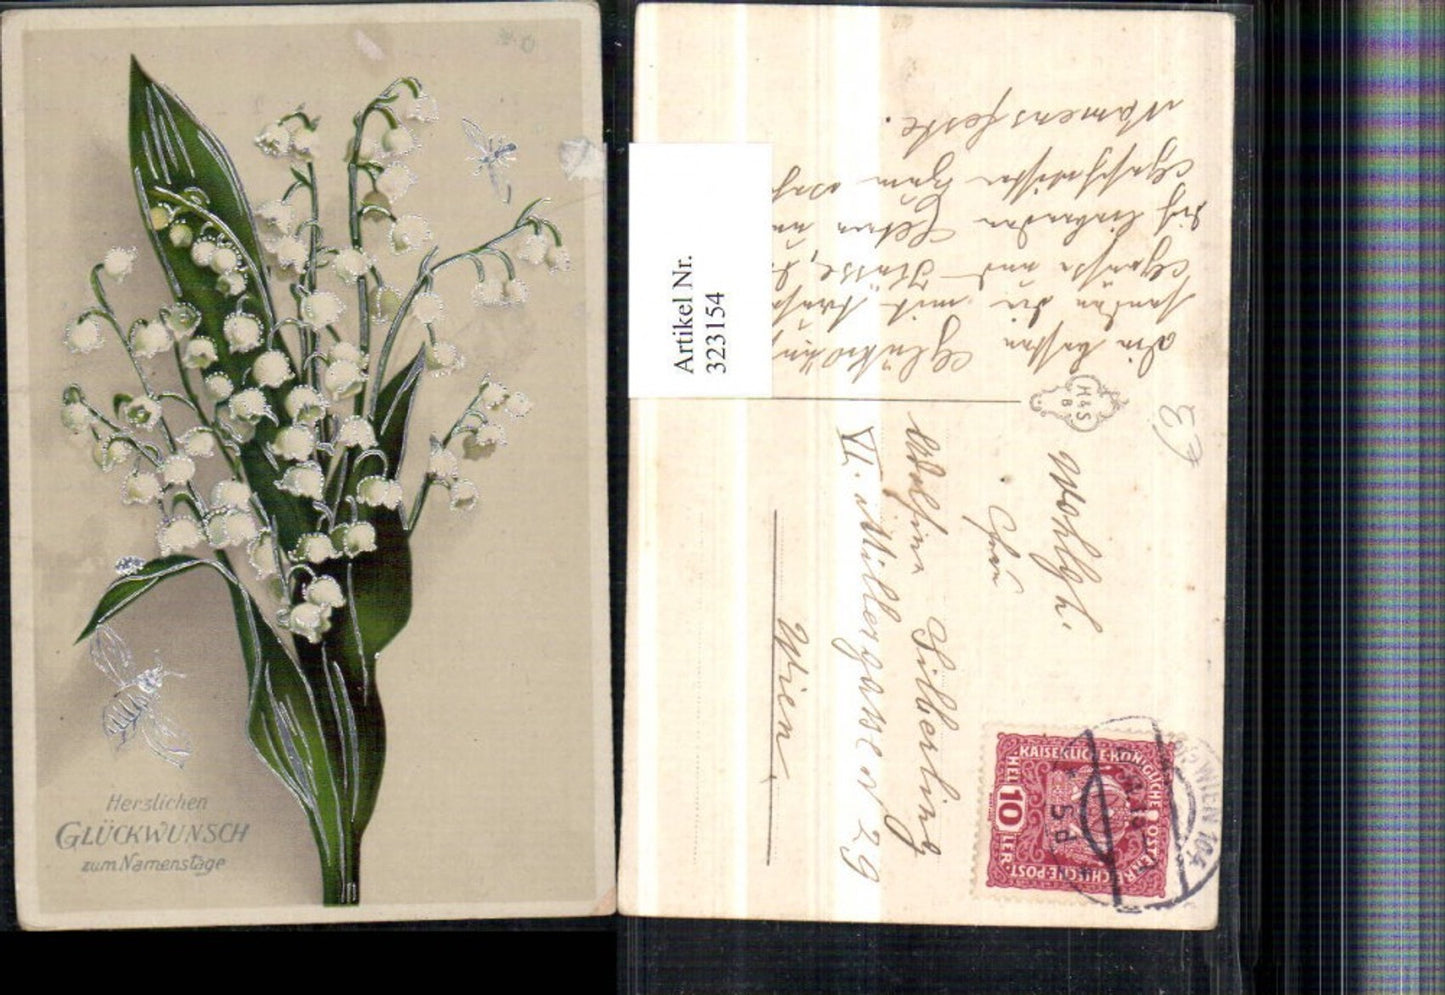 Herzlichen
GLÜCKWUNSCH
zum Namenstage
Artikel Nr.
323154
Die besten Glückwünsch
senden dir mit
und Küsse,
dich liebenden
Geschwister zum
Namensfeste.
H & S
B
Wohlgb.
Frau
Adolfine Silberling
VI. Millergasse № 29
Wien.
KAISERLICHE·KÖNIGLICHE ÖSTERREICHISCHE·POST
10
HELLER
WIEN 104
5d